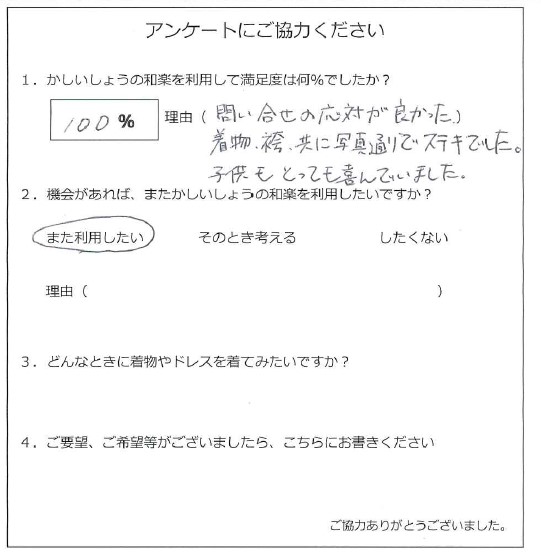 アンケートにご協力ください
1．かしいしょうの和楽を利用して満足度は何%でしたか？
100 % 理由（問い合せの応対が良かった）
着物、袴、共に写真通りでステキでした。
子供も とっても喜んでいました。
2．機会があれば、またかしいしょうの和楽を利用したいですか？
また利用したい そのとき考える したくない
理由（ ）
3．どんなときに着物やドレスを着てみたいですか？
4．ご要望、ご希望等がございましたら、こちらにお書きください
ご協力ありがとうございました。